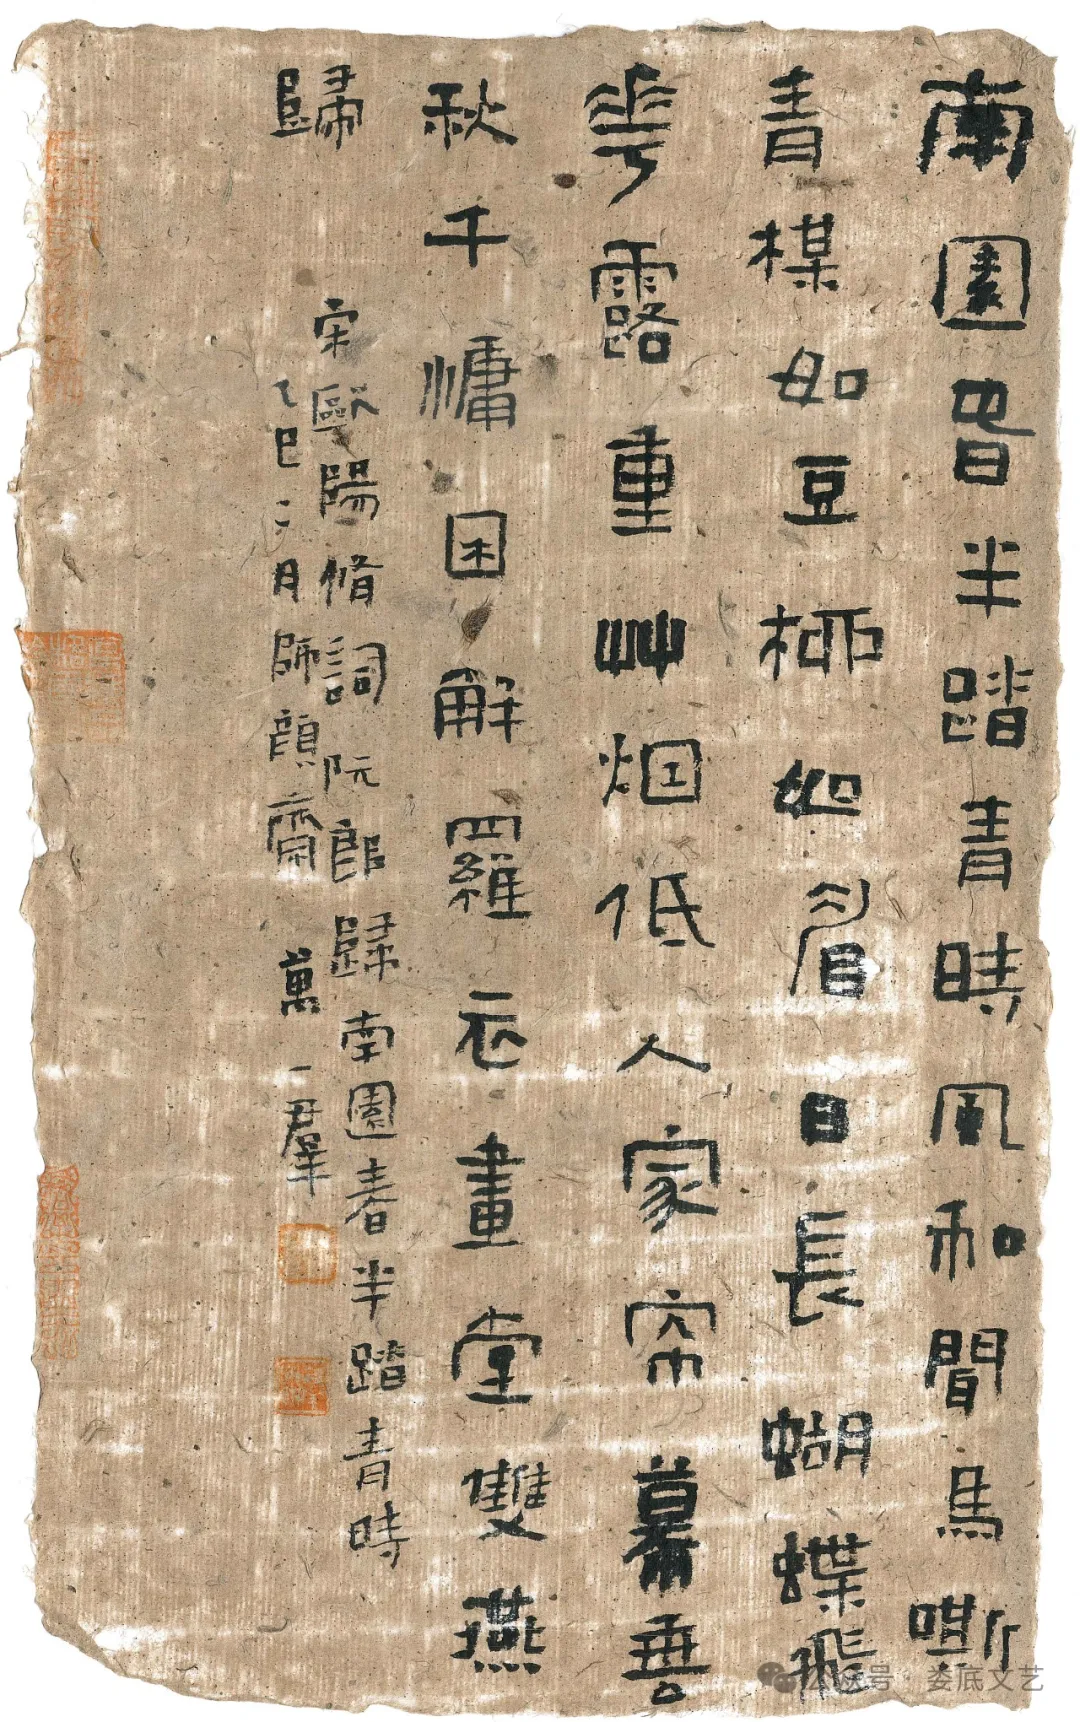 南園春半踏青時風和聞馬嘶
青楳如豆桺如眉日長蝴蝶飛
華露重艸烟低人家帘幕垂
秋千慵困解羅衣畫堂雙燕
歸
宋歐陽脩詞阮郎歸南園春半踏青時
乙巳二月師顔齋 萬一羣
公众号·娄底文艺